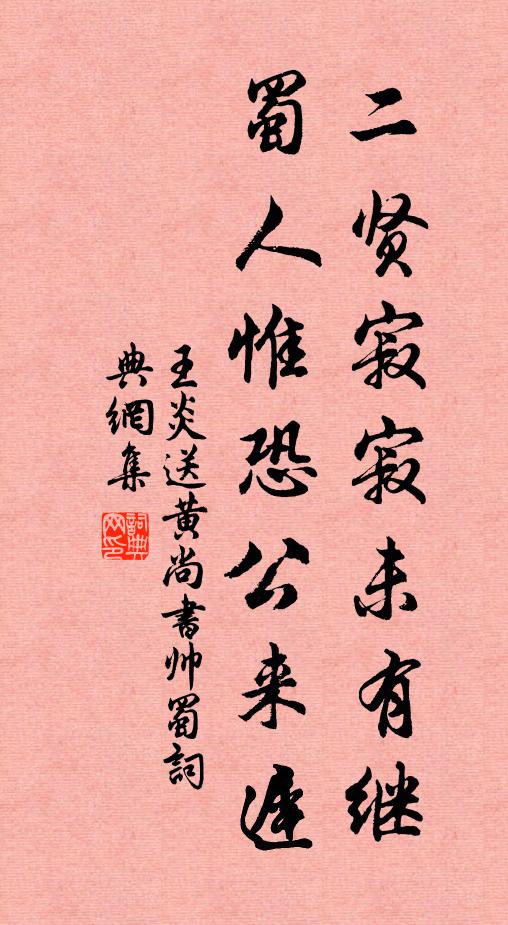 二贤寂寂未有继
蜀人惟恐公来遲
王炎送黄尚書帅蜀詞
典網集
詞典
网印